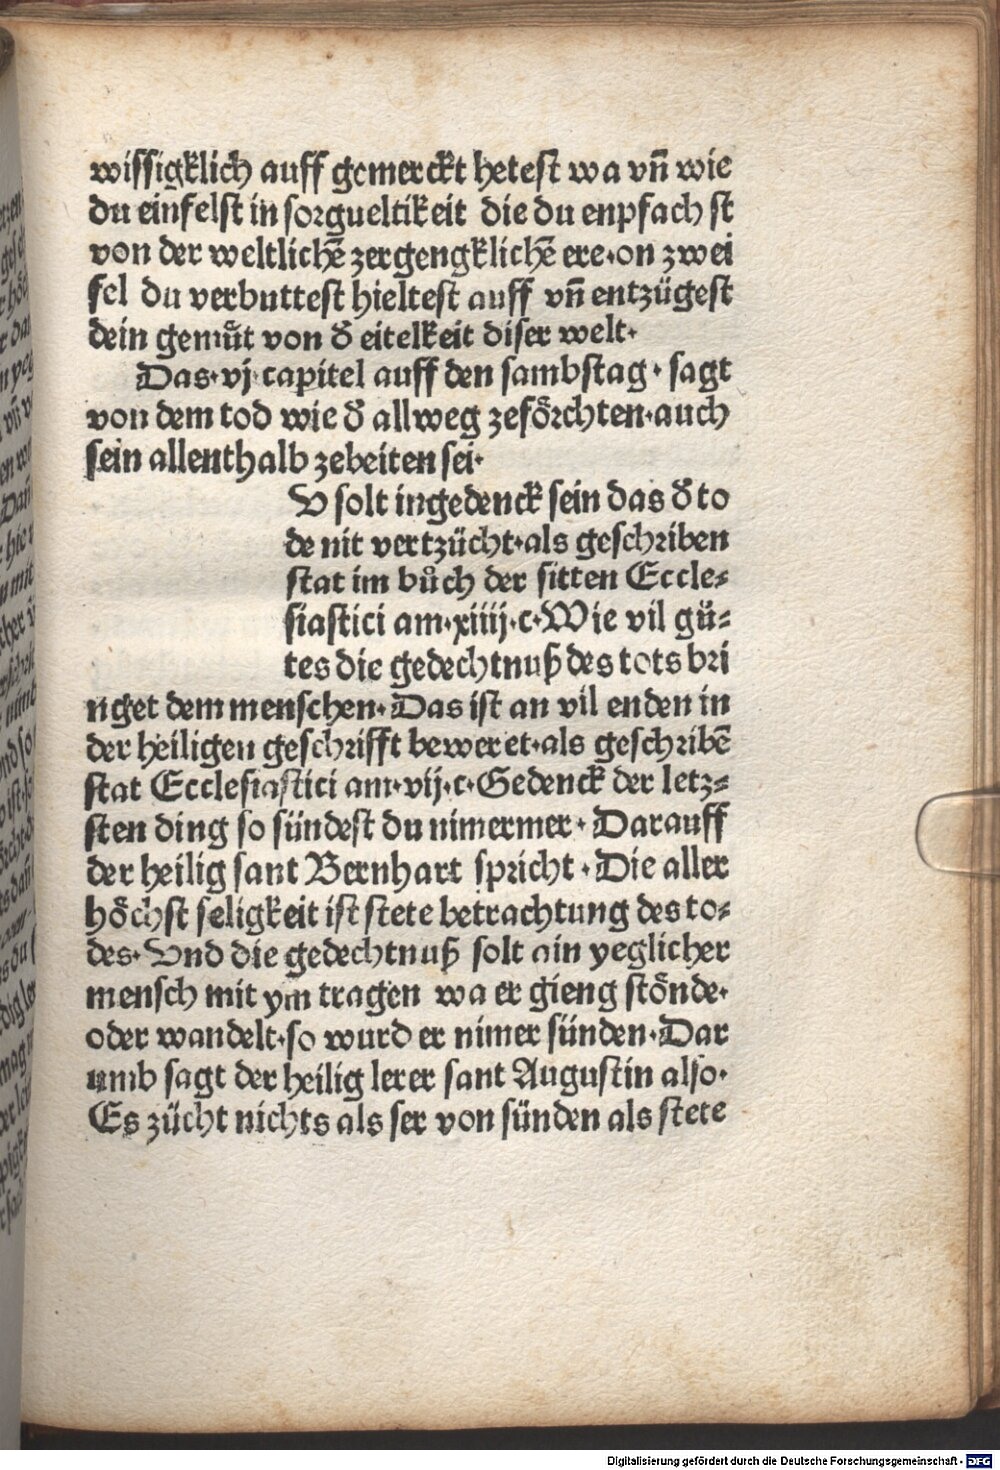 wissigklich auff gemerckt hetest wa vn̄ wie
du einfelst in sorgueltikeit die du enpfach st
von der weltlichē zergengklichē ere·on zwei
fel du verbuttest hieltest auff vn̄ entzügest
dein gemuͤt von ð eitelkeit diser welt·
Das·vj·capitel auff den sambstag·sagt
von dem tod wie ð allweg zefoͤrchten·auch
sein allenthalb zebeiten sei·
V solt ingedenck sein das ð to
de nit vertzücht·als geschriben
stat im buͦch der sitten Eccle⸗
siastici am·xiiij·c·Wie vil guͤ⸗
tes die gedechtnuß des tots bri
nget dem menschen·Das ist an vil enden in
der heiligen geschrifft beweret·als geschribē
stat Ecclesiastici am·vij·c·Gedenck der letz⸗
sten ding so sündest du nimermer·Darauff
der heilig sant Bernhart spricht·Die aller
hoͤchst seligkeit ist stete betrachtung des to⸗
des·Vnd die gedechtnuß solt ain yeglicher
mensch mit ym tragen wa er gieng stoͤnde·
oder wandelt·so wurd er nimer sünden·Dar
umb sagt der heilig lerer sant Augustin also·
Es zücht nichts als ser von sünden als stete
Digitalisierung gefördert durch die Deutsche Forschungsgemeinschaft - DFG